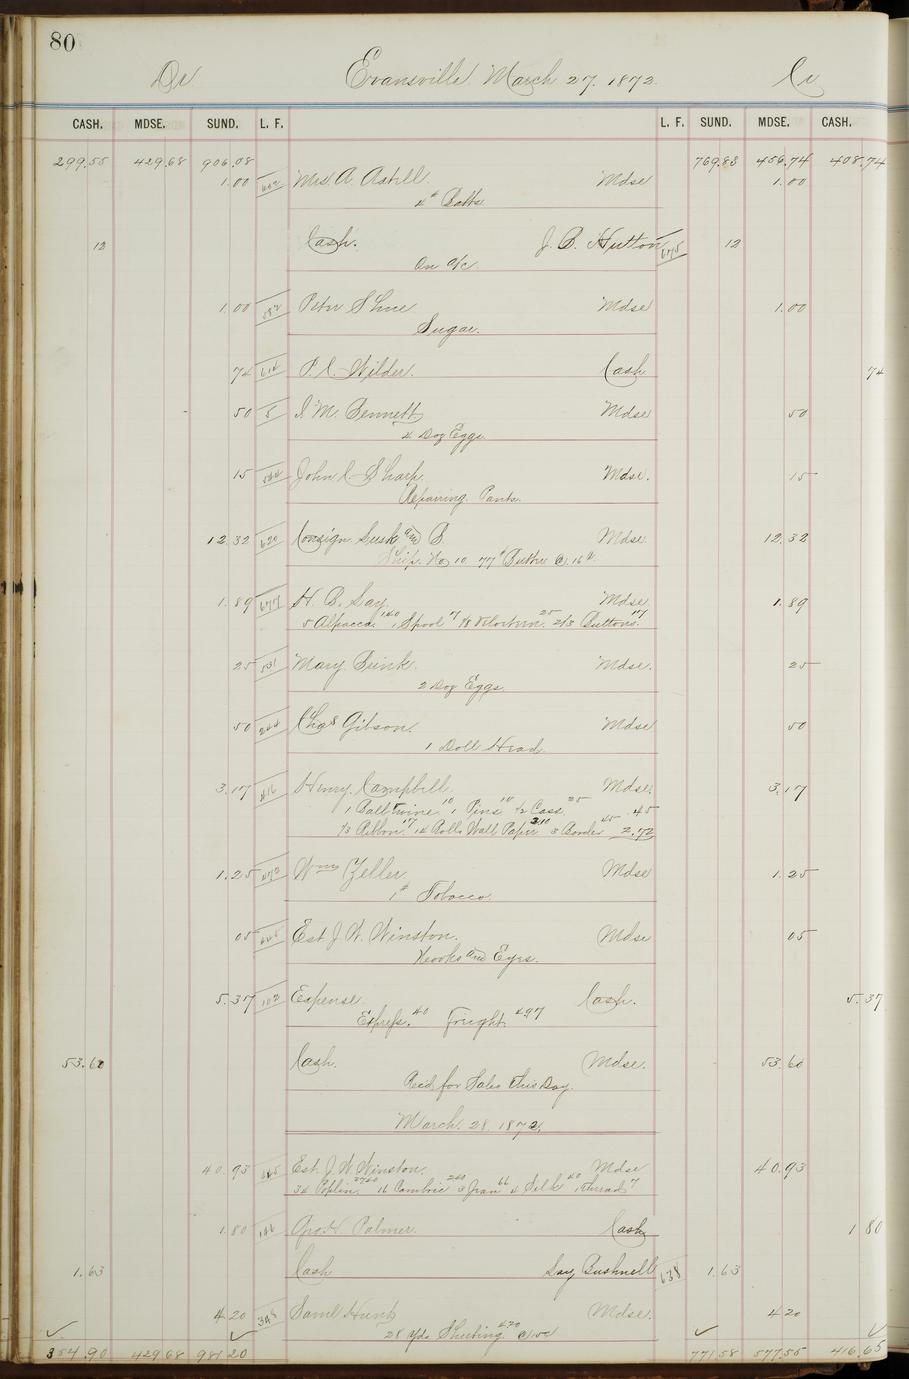 80
Dr Evansville March 27. 1872. Cr
CASH. MDSE. SUND. L. F. L. F. SUND. MDSE. CASH.
299.55 429.68 906.08 769.83 456.74 408.74
1.00 Mrs. A. Astell. Mdse 1.00
4# Batts
12 Cash. J. B. Hutton 675 12
On a/c.
1.00 582 Peter Shue Mdse 1.00
Sugar.
74 614 P. C. Wilder. Cash 74
50 8 I. M. Bennett Mdse 50
4 Doz Eggs.
15 544 John C. Sharp. Mdse. 15
Repairing Pants.
12.32 620 Consign Lusk and B Mdse 12.32
Ship. No 10. 77# Butter @ 16c.
1.89 677 H. B. Say. Mdse 1.89
5 Alpacca. 140 1 Spool 7 25 2/3 Buttons. 17
25 531 Mary Brink. Mdse. 25
2 Doz Eggs.
50 244 Chas Gibson. Mdse 50
1 Doll Head.
3.17 416 Henry Campbell. Mdse. 3.17
1 Ball Twine 10 1 Pins 10 1/2 Cass. 25 45
1/3 Ribbon. 17 14 Rolls Wall Paper 210 3 Border 45 2.72
1.25 472 Wm Zeller. Mdse 1.25
1# Tobacco.
05 645 Est J. W. Winston. Mdse 05
Hooks and Eyes.
5.37 102 Expense. Cash. 5.37
Express. 40 Freight. 497
53.60 Cash. Mdse. 53.60
Recd for Sales This Day.
March. 28. 1872.
40.93 645 Est. J. W. Winston. Mdse 40.93
34 Poplin. 3740 16 Cambric 240 3 Jean 66 4 Silk 40 1 Thread 7
1.80 146 Geo. H. Palmer. Cash 1 80
1.63 Cash Say Bushnell 638 1.63
4 20 348 Saml Hunt Mdse. 4 20
28 yds Sheeting. 420 @ 15c
354.90 429 68 981 20 771.58 577.55 416.65